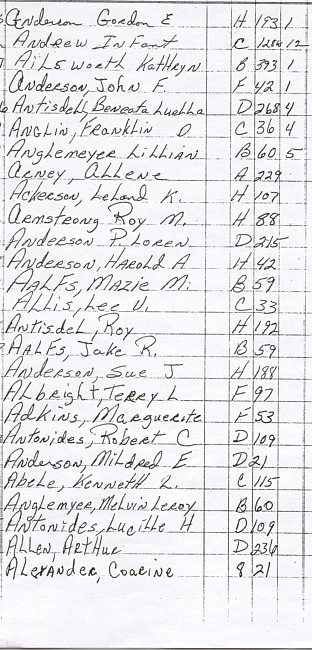 Anderson Gordon E H 193 1
Andrew Infant C 1284 12
Ailsworth Kathryn B 393 1
Anderson, John F. F 42 1
Antisdell, Beneata Luella D 268 4
Anglin, Franklin D C 36 4
Anglemeyer Lillian B 60 5
Arney, Allene A 229
Ackerson, Leland K. H 107
Armstrong Roy M. H 88
Anderson P. Loren D 215
Anderson, Harold A H 42
Aalfs, Mazie M. B 59
Allis, Lee V. C 33
Antisdel, Roy H 192
Aalfs, Jake R. B 59
Anderson, Sue J H 188
Albright, Terry L F 97
Adkins, Marguerite F 53
Antonides, Robert C D 109
Anderson, Mildred E D 21
Abele, Kenneth L. C 115
Anglemyer, Melvin Leroy B 60
Antonides, Lucille H D 109
Allen, Arthur D 236
Alexander, Coarine 8 21